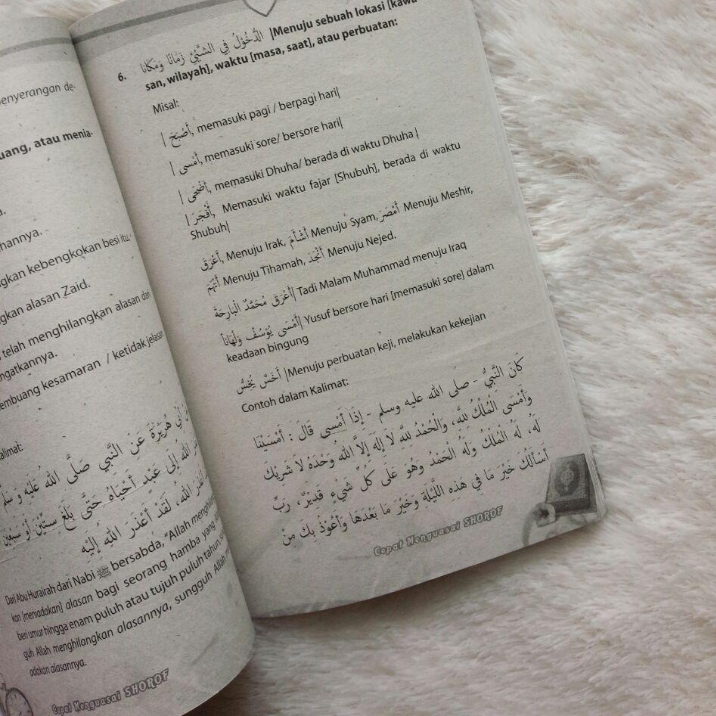 enyerangan de-
uang, atau menia-
a.
hannya.
gkan kebengkokan besi itu.
gkan alasan Zaid.
telah menghilangkan alasan dan
ngatkannya.
embuang kesamaran / ketidakjelasan
alimat:
أَبِي هُرَيْرَةَ عَنِ النَّبِي صَلَّى اللهُ عَلَيْهِ وَسَلَّمَ
اللهُ إِلَى عَبْدٍ أَحْيَاهُ حَتَّى بَلَغَ سِتِّيْنَ أَوْ سَبْعِيْنَ
اللهُ، لَقَدْ أَعْذَرَ اللهُ إِلَيْهِ
Dari Abu Hurairah dari Nabi ﷺ bersabda, "Allah menghi
kan [meniadakan] alasan bagi seorang hamba yang
beri umur hingga enam puluh atau tujuh puluh tahun,
guh Allah menghilangkan alasannya, sungguh Allah m
adakan alasannya.
Cepat Menguasai SHOROF
6. الدُّخُوْلُ فِي الشَّيْئِ زَمَانًا وَمَكَانًا |Menuju sebuah lokasi [kawa
san, wilayah], waktu [masa, saat], atau perbuatan:
Misal:
| أَصْبَحَ, memasuki pagi / berpagi hari|
| أَمْسَى, memasuki sore/ bersore hari|
| أَضْحَى, memasuki Dhuha/ berada di waktu Dhuha|
| أَفْجَرَ, Memasuki waktu fajar [Shubuh], berada di waktu
Shubuh|
أَعْرَقَ, Menuju Irak, أَشْأَمَ Menuju Syam, أَمْصَرَ Menuju Meshir,
أَتْهَمَ Menuju Tihamah, أَنْجَدَ Menuju Nejed.
أَعْرَقَ مُحَمَّدٌ الْبَارِحَةَ| Tadi Malam Muhammad menuju Iraq
أَمْسَى يُوْسُفُ وَلْهَانًا| Yusuf bersore hari [memasuki sore] dalam
keadaan bingung
أَفْحَشَ يُفْحِشُ |Menuju perbuatan keji, melakukan kekejian
Contoh dalam Kalimat:
كَانَ النَّبِيُّ - صلى الله عليه وسلم - إِذَا أَمْسَى قَالَ : أَمْسَيْنَا
وَأَمْسَى الْمُلْكُ لِلَّهِ، وَالْحَمْدُ لِلَّهِ لَا إِلَهَ إِلَّا اللَّهُ وَحْدَهُ لَا شَرِيْكَ
لَهُ، لَهُ الْمُلْكُ وَلَهُ الْحَمْدُ وَهُوَ عَلَى كُلِّ شَيْءٍ قَدِيْرٌ، رَبِّ
أَسْأَلُكَ خَيْرَ مَا فِي هَذِهِ اللَّيْلَةِ وَخَيْرَ مَا بَعْدَهَا وَأَعُوْذُ بِكَ مِنْ
Cepat Menguasai SHOROF